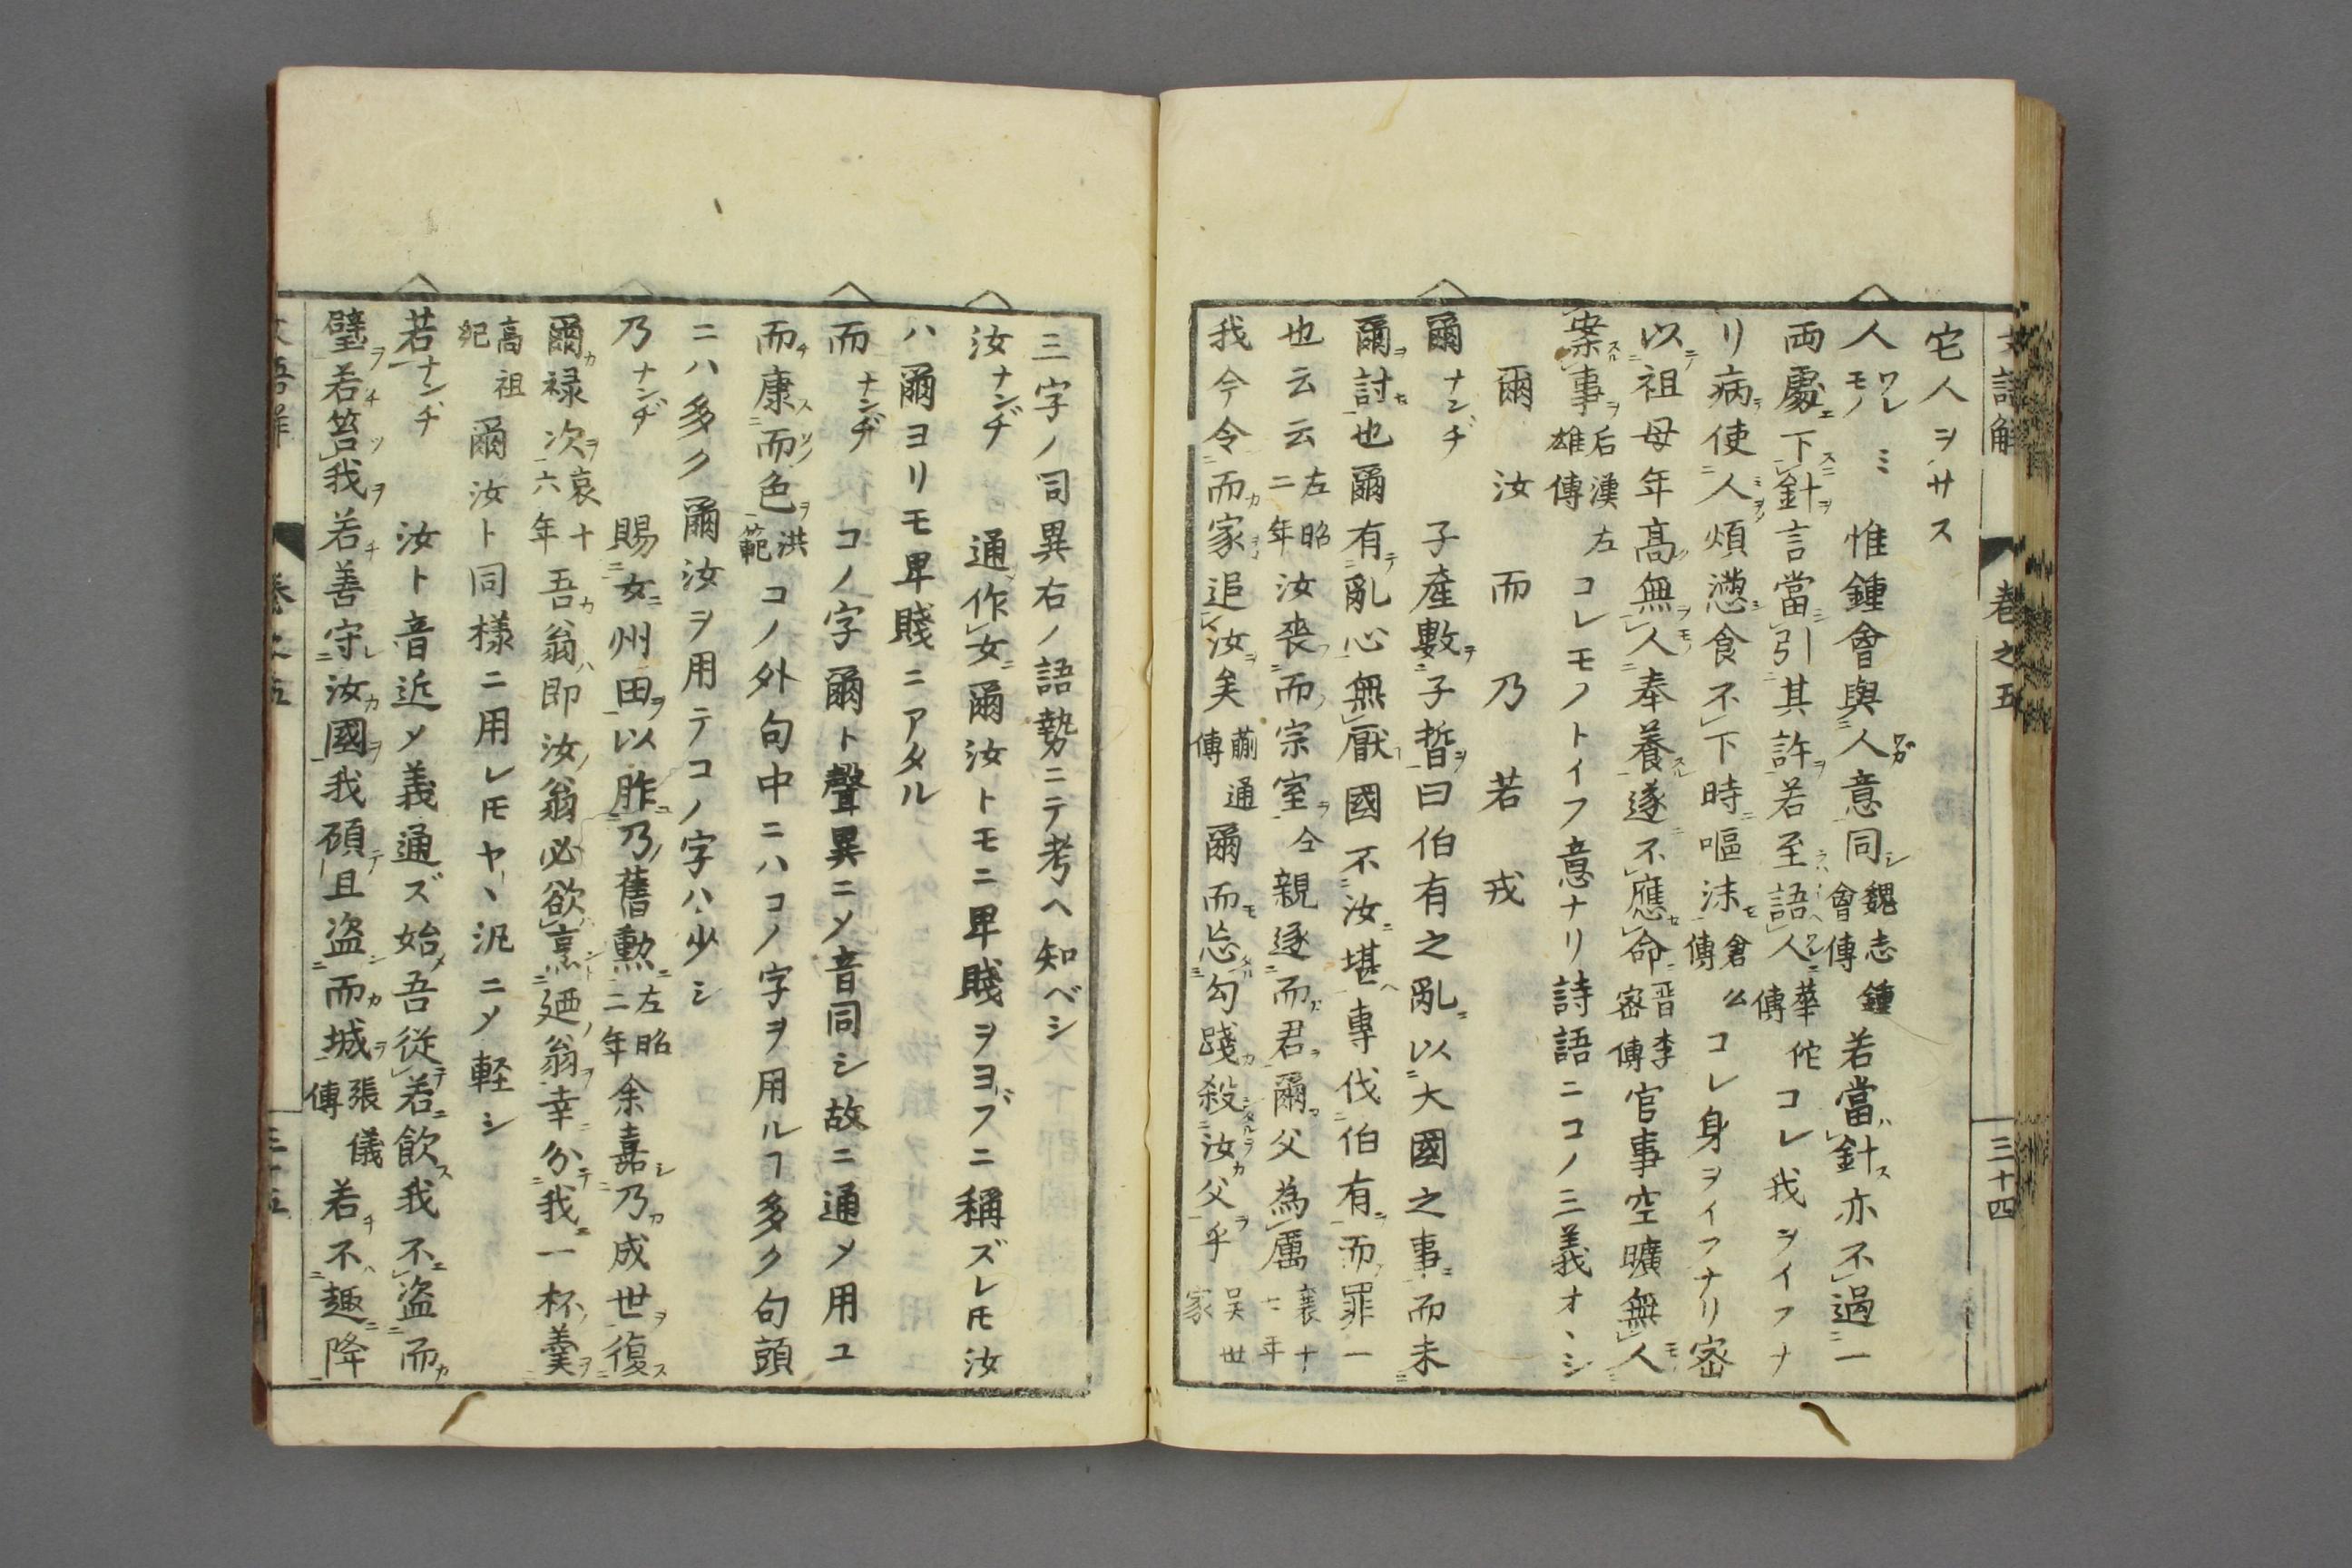 文語解 巻之五 三十四
宅人ヲサス
人 ワレ モノ ミ 惟鍾會與人意同 魏志鍾會傳 若當針亦不過一
両處下針言當引其許若至語人 華佗傳 コレ我ヲイフナ
リ病使人煩懣食不下時嘔沫 倉公傳 コレ身ヲイフナリ密
以祖母年髙無人奉養遂不應命 晋李密傳 官事空曠無人
案事 后漢左雄傳 コレモノトイフ意ナリ詩語ニコノ三義オヽシ
爾 汝 而 乃 若 戎
爾 ナンヂ 子產數子晳曰伯有之亂以大國之事而未
爾討也爾有亂心無厭國不汝堪專伐伯有而罪一
也云云 左昭二年 汝喪而宗室 仝 親逐而君爾父為厲 襄十七年
我今令而家追汝矣 蒯通傳 爾而忘勾踐殺汝父乎 吴世家
三字ノ同異右ノ語勢ニテ考ヘ知ベシ
汝 ナンヂ 通作女爾汝トモニ卑賤ヲヨブニ稱ズレ𪜈汝
ハ爾ヨリモ卑賤ニアタル
而 ナンヂ コノ字爾ト聲異ニメ音同シ故ニ通メ用ユ
而康而色 洪範 コノ外句中ニハコノ字ヲ用ルヿ多ク句頭
ニハ多ク爾汝ヲ用テコノ字ハ少シ
乃 ナンヂ 賜女州田以胙乃舊勳 左昭二年 余嘉乃成世復
爾禄次 哀十六年 吾翁即汝翁必欲烹廼翁幸分我一杯羹
高祖紀 爾汝ト同様ニ用レ𪜈ヤヽ汎ニメ軽シ
若 ナンヂ 汝ト音近メ義通ズ始吾從若飲我不盗而
璧若笞我若善守汝國我碩且盗而城 張儀傳 若不趣降
巻之五 三十五